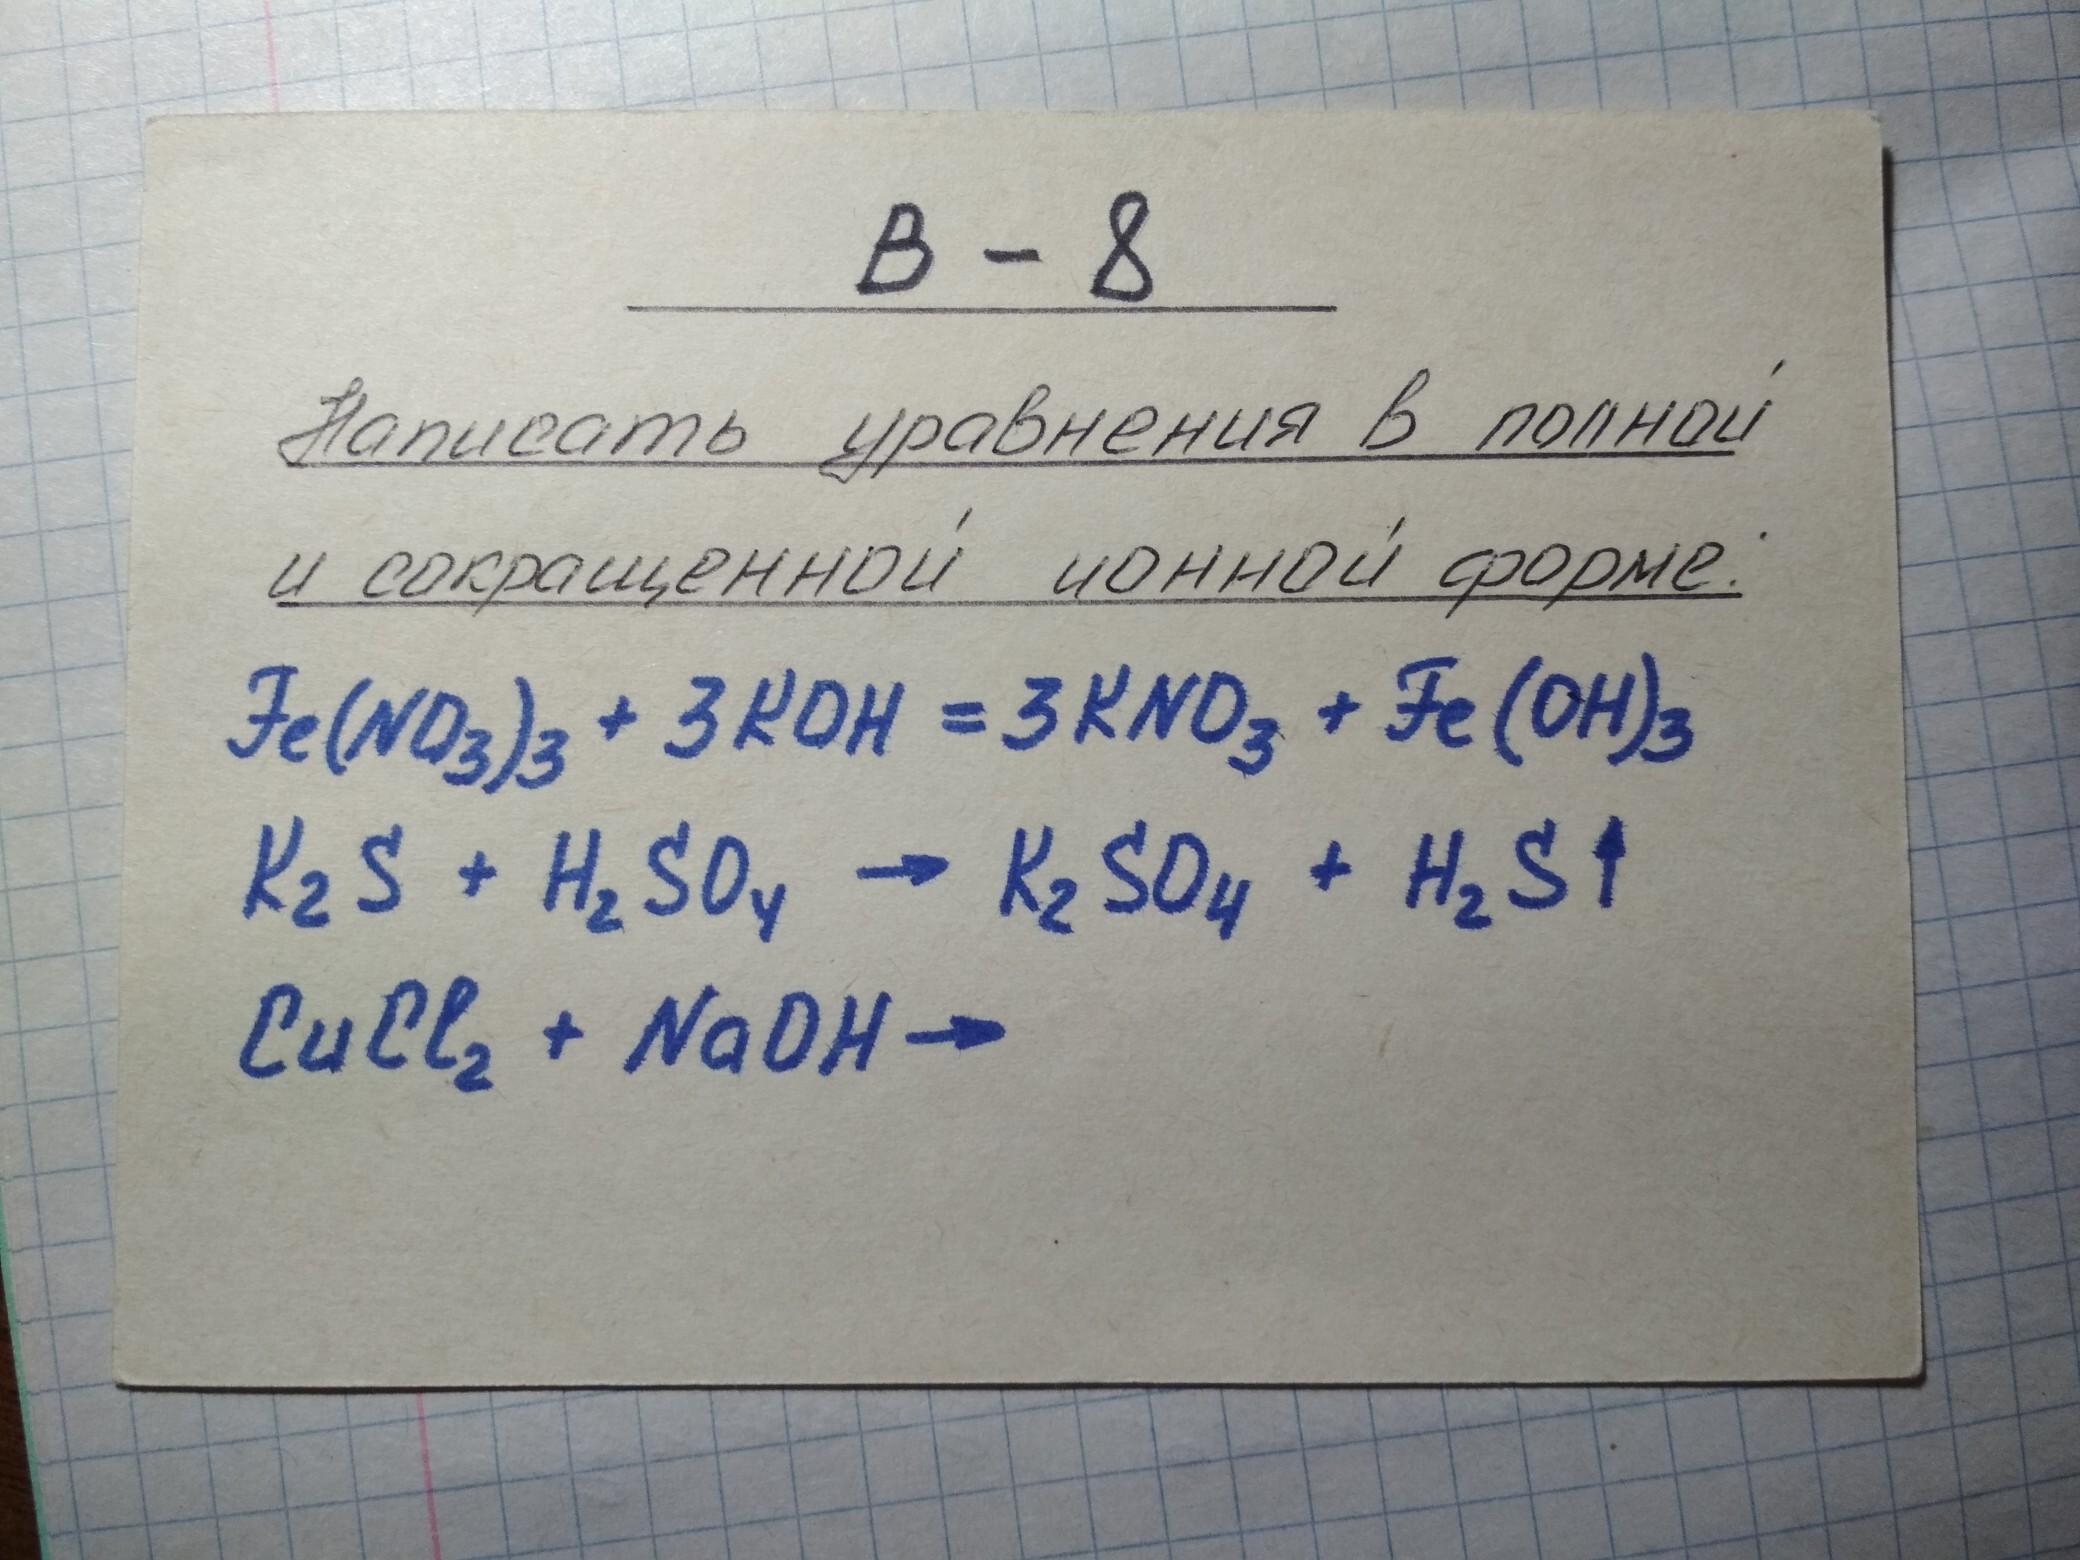 В - 8
Написать уравнения в полной
и сокращенной ионной форме:
Fe(NO₃)₃ + 3KOH = 3KNO₃ + Fe(OH)₃
K₂S + H₂SO₄ → K₂SO₄ + H₂S↑
CuCl₂ + NaOH →